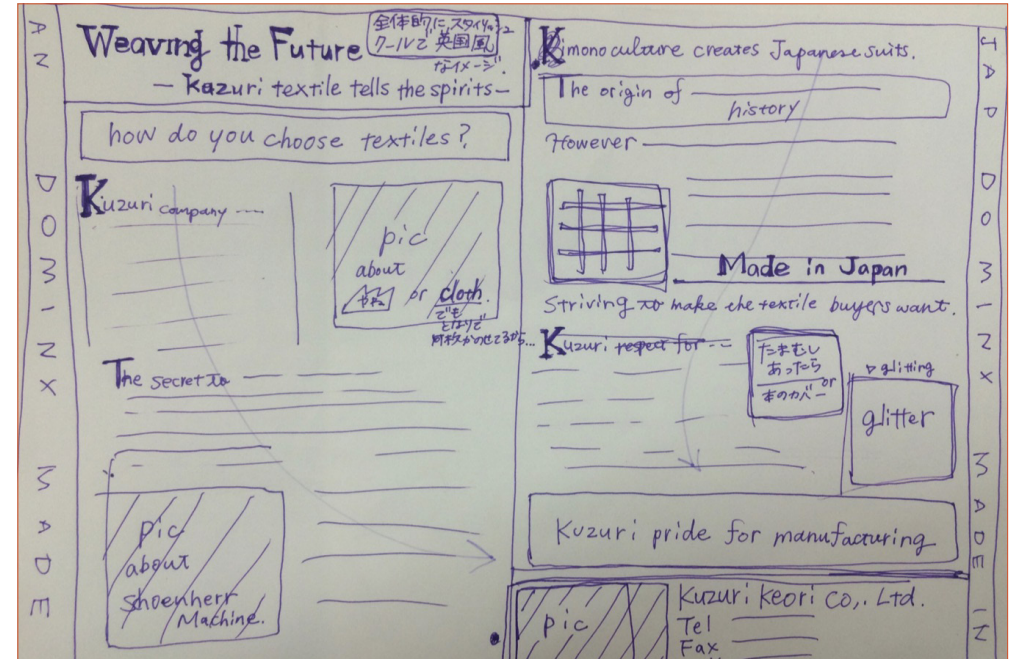 AN DOMINX MADE
Weaving the Future
全体的に、スタイリッシュ
クールで英国風
なイメージ。
— Kazuri textile tells the spirits —
how do you choose textiles?
Kuzuri company ----
pic
about
or cloth.
でも
となりで
The secret to
pic
about
Shoenherr
Machine.
Kimono culture creates Japanese suits.
The origin of
history
However
Made in Japan
Striving to make the textile buyers want.
Kuzuri respect for ---
たまむし
あったら
or
本のカバー
▷ glitting
glitter
Kuzuri pride for manufacturing
pic
Kuzuri Keori Co,. Ltd.
Tel
Fax
JAP DOMINX MADE IN